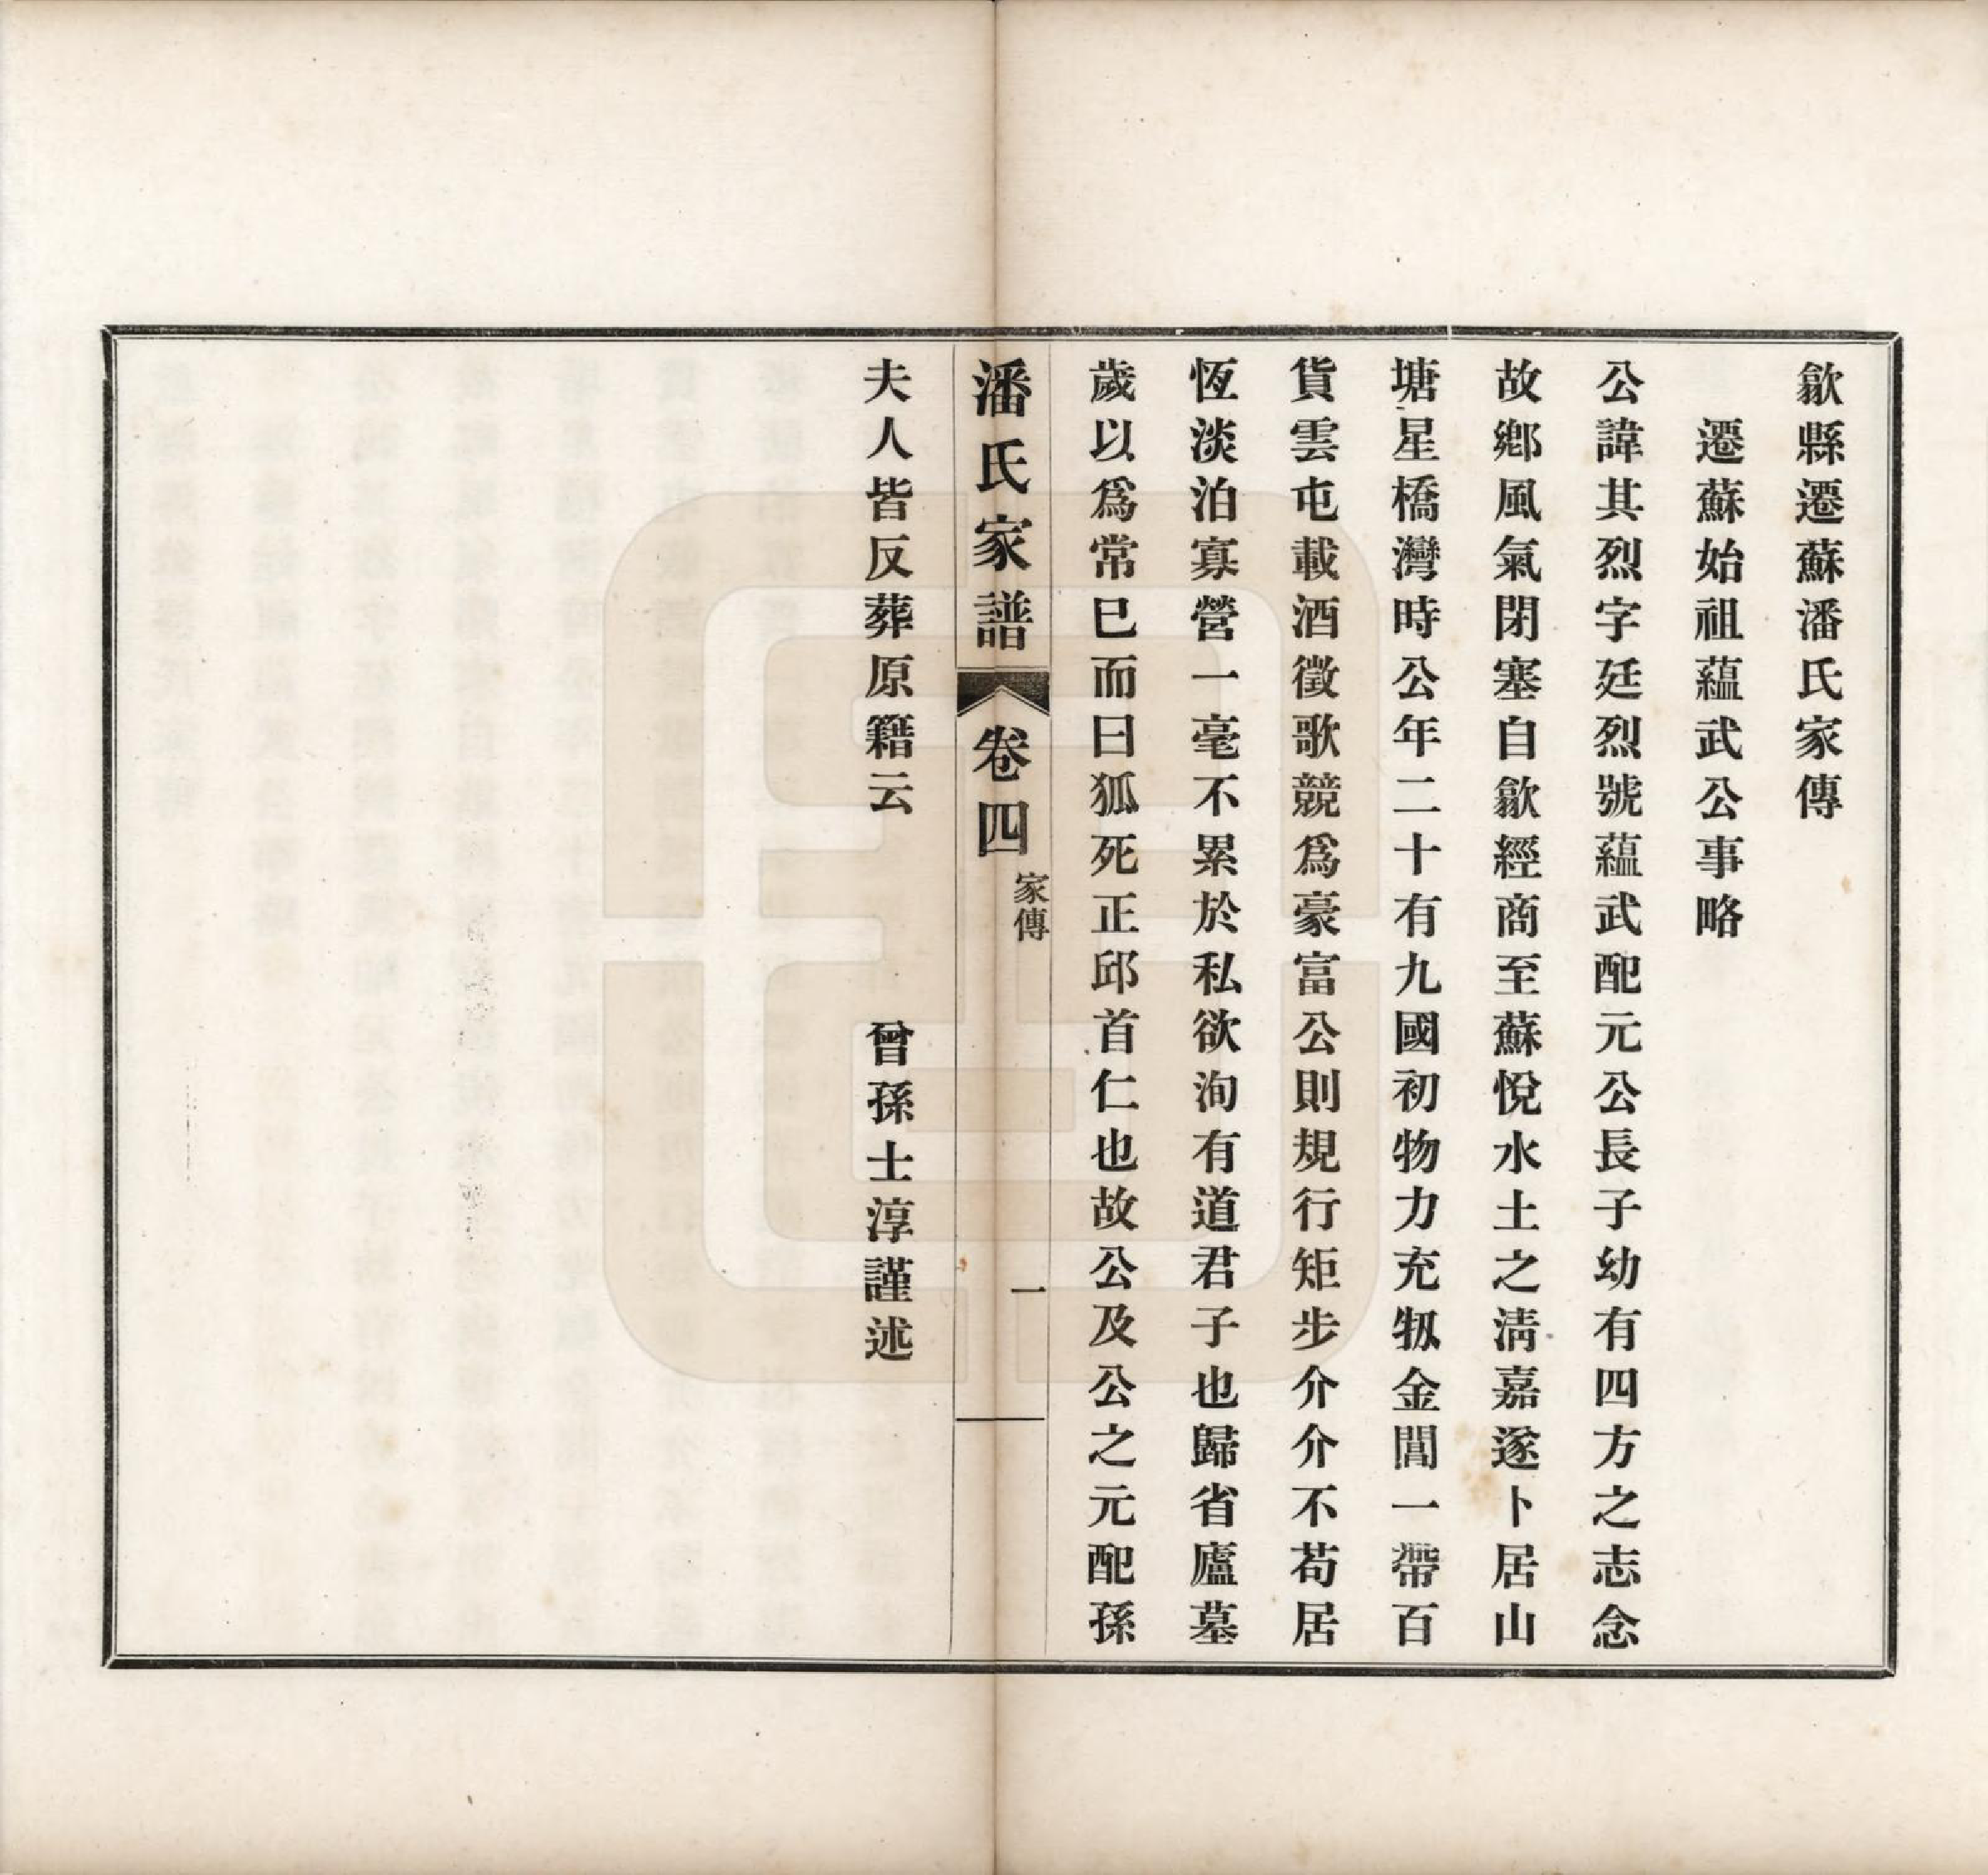 歙縣遷蘇潘氏家傳
遷蘇始祖蘊武公事略
公諱其烈字廷烈號蘊武配元公長子幼有四方之志念
故鄉風氣閉塞自歙經商至蘇悅水土之清嘉遂卜居山
塘星橋灣時公年二十有九國初物力充牣金閶一帶百
貨雲屯載酒徵歌競爲豪富公則規行矩步介介不苟居
恆淡泊寡營一毫不累於私欲洵有道君子也歸省廬墓
歲以爲常巳而曰狐死正邱首仁也故公及公之元配孫
潘氏家譜 卷四 家傳 一
夫人皆反葬原籍云 曾孫士淳謹述